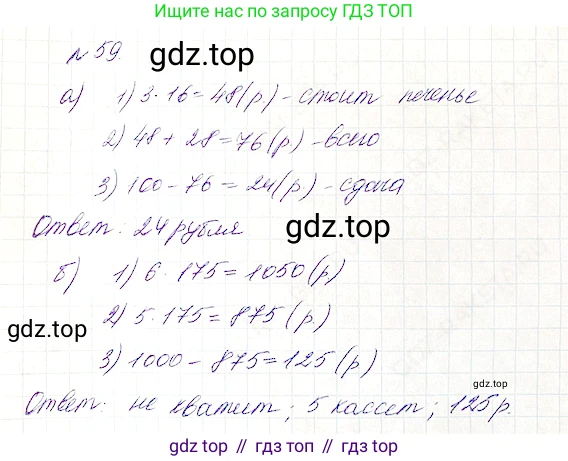 Ищите нас по запросу ГДЗ ТОП
№ 59.
gdz.top
а) 1) 3 · 16 = 48 (р.) - стоит печенье
2) 48 + 28 = 76 (р.) - всего
3) 100 - 76 = 24 (р.) - сдача
Ответ: 24 рубля
gdz.top
б) 1) 6 · 175 = 1050 (р)
2) 5 · 175 = 875 (р)
gdz.top
3) 1000 - 875 = 125 (р)
Ответ: не хватит; 5 кассет; 125 р.
gdz.top
gdz.top // гдз топ // гдз.топ